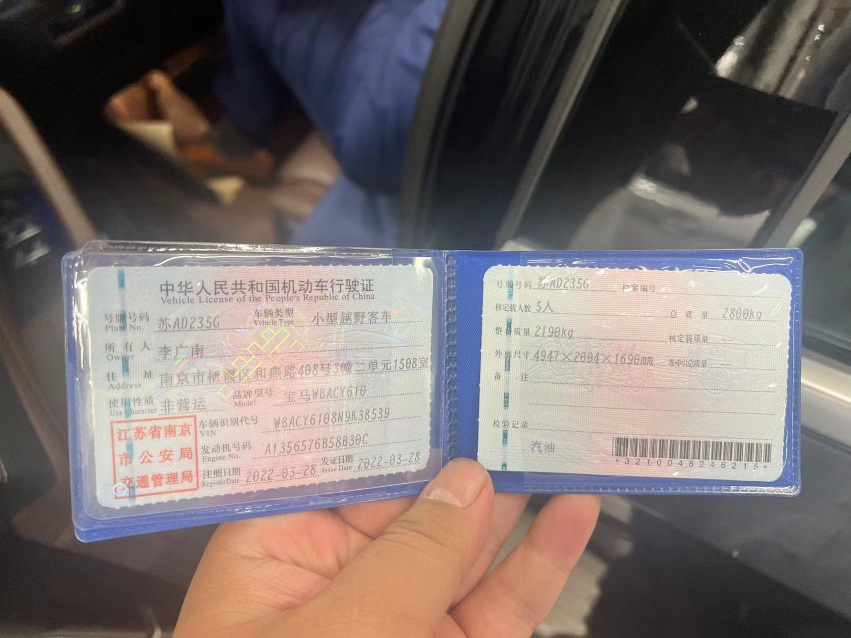 中华人民共和国机动车行驶证
Vehicle License of the People's Republic of China
号牌号码 Plate No. 苏AD235G 车辆类型 Vehicle Type 小型越野客车
所有人 Owner 李广南
住址 Address 南京市栖霞区和燕路408号3幢二单元1508室
使用性质 Use Character 非营运 品牌型号 Model 宝马WBACY610
车辆识别代号 VIN WBACY6108N9K38539
发动机号码 Engine No. A1356576B58B30C
注册日期 Register Date 2022-03-28 发证日期 Issue Date 2022-03-28
江苏省南京
市公安局
交通管理局
号牌号码 苏AD235G 档案编号
核定载人数 5人 总质量 2800kg
整备质量 2190kg 核定载质量
外廓尺寸 4947×2004×1690mm 准牵引总质量
备注
检验记录
汽油
*3210048246215*